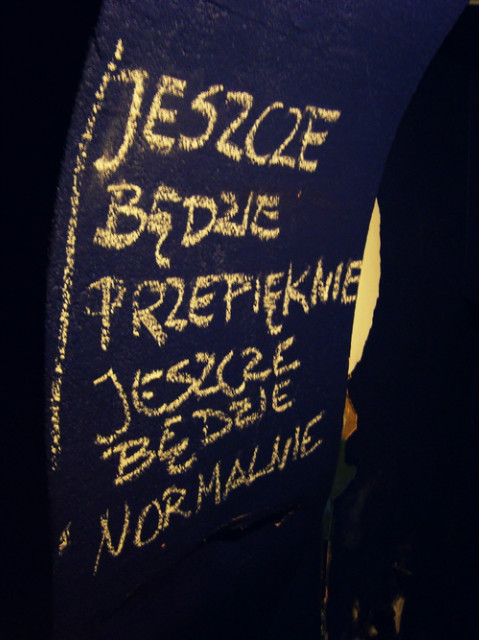 JESZCZE
BĘDZIE
PRZEPIĘKNIE
JESZCZE
BĘDZIE
NORMALNIE